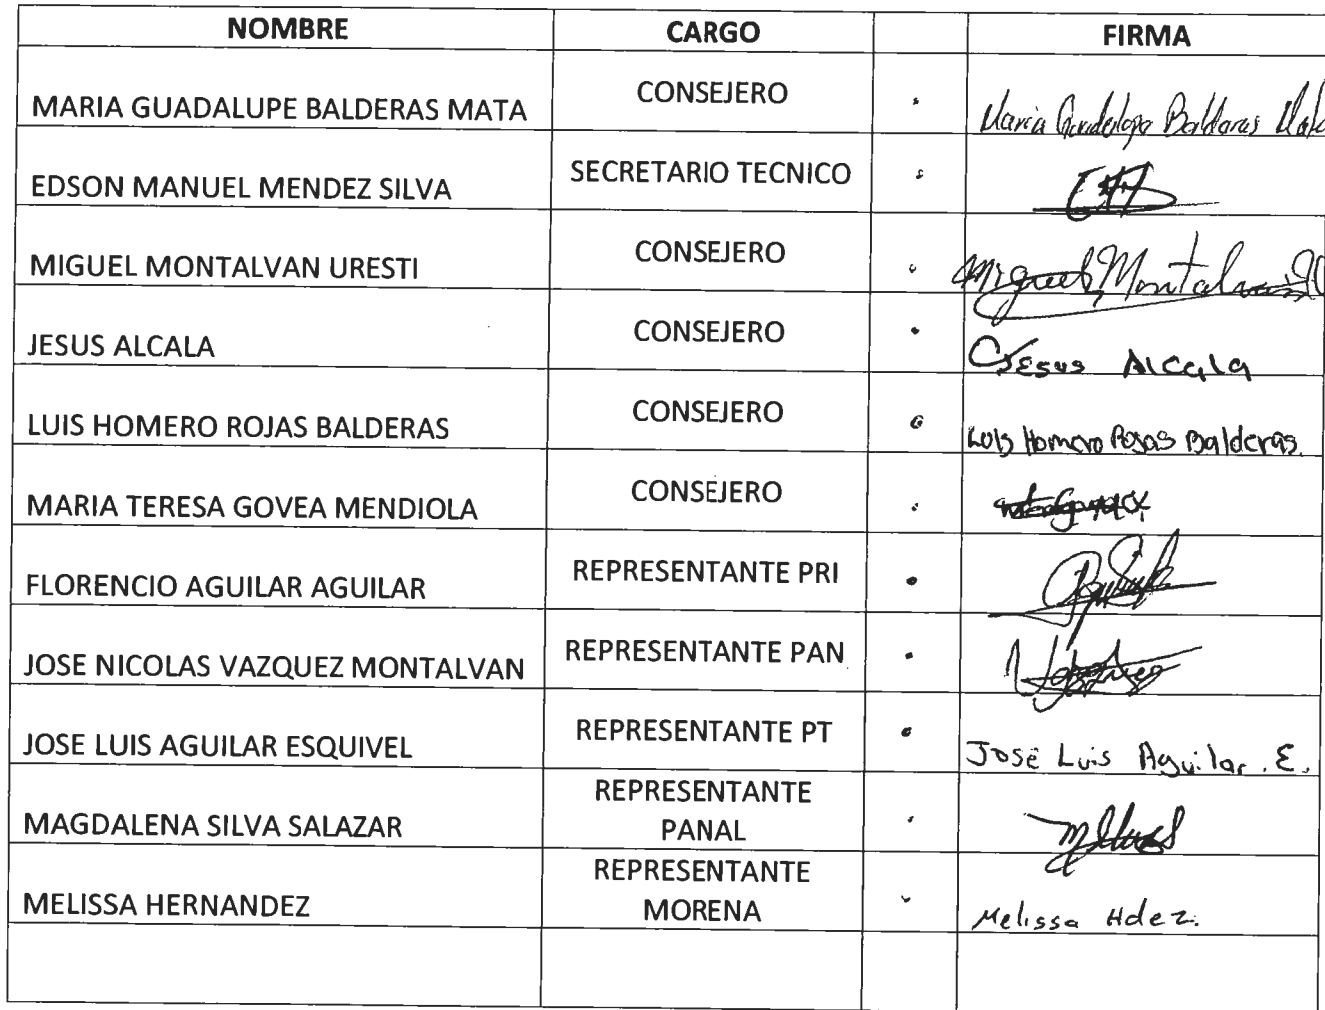 NOMBRE CARGO FIRMA
MARIA GUADALUPE BALDERAS MATA CONSEJERO Maria Guadalupe Balderas Mata
EDSON MANUEL MENDEZ SILVA SECRETARIO TECNICO
MIGUEL MONTALVAN URESTI CONSEJERO Miguel Montalvan U
JESUS ALCALA CONSEJERO Jesus Alcala
LUIS HOMERO ROJAS BALDERAS CONSEJERO Luis Homero Rojas Balderas.
MARIA TERESA GOVEA MENDIOLA CONSEJERO
FLORENCIO AGUILAR AGUILAR REPRESENTANTE PRI
JOSE NICOLAS VAZQUEZ MONTALVAN REPRESENTANTE PAN
JOSE LUIS AGUILAR ESQUIVEL REPRESENTANTE PT José Luis Aguilar .E.
REPRESENTANTE
MAGDALENA SILVA SALAZAR PANAL
REPRESENTANTE
MELISSA HERNANDEZ MORENA Melissa Hdez.